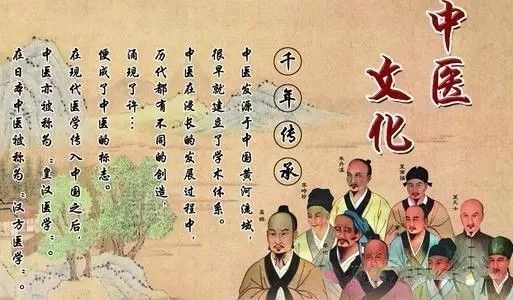 中医
文化
千年传承
中医发源于中国黄河流域，
很早就建立了学术体系。
中医在漫长的发展过程中，
历代都有不同的创造，
涌现了许…
便成了中医的标志。
在现代医学传入中国之后，
中医亦被称为“皇汉医学”。
在日本中医被称为“汉方医学”。
朱丹溪
李时珍
扁鹊